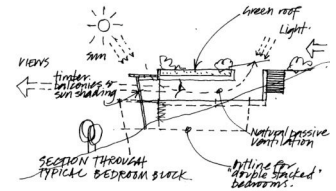 Green roof
Light
Sun
VIEWS
timber
balconies &
sun shading
Natural passive
ventilation
SECTION THROUGH
TYPICAL BEDROOM BLOCK.
Outline for
'double stacked'
bedrooms.